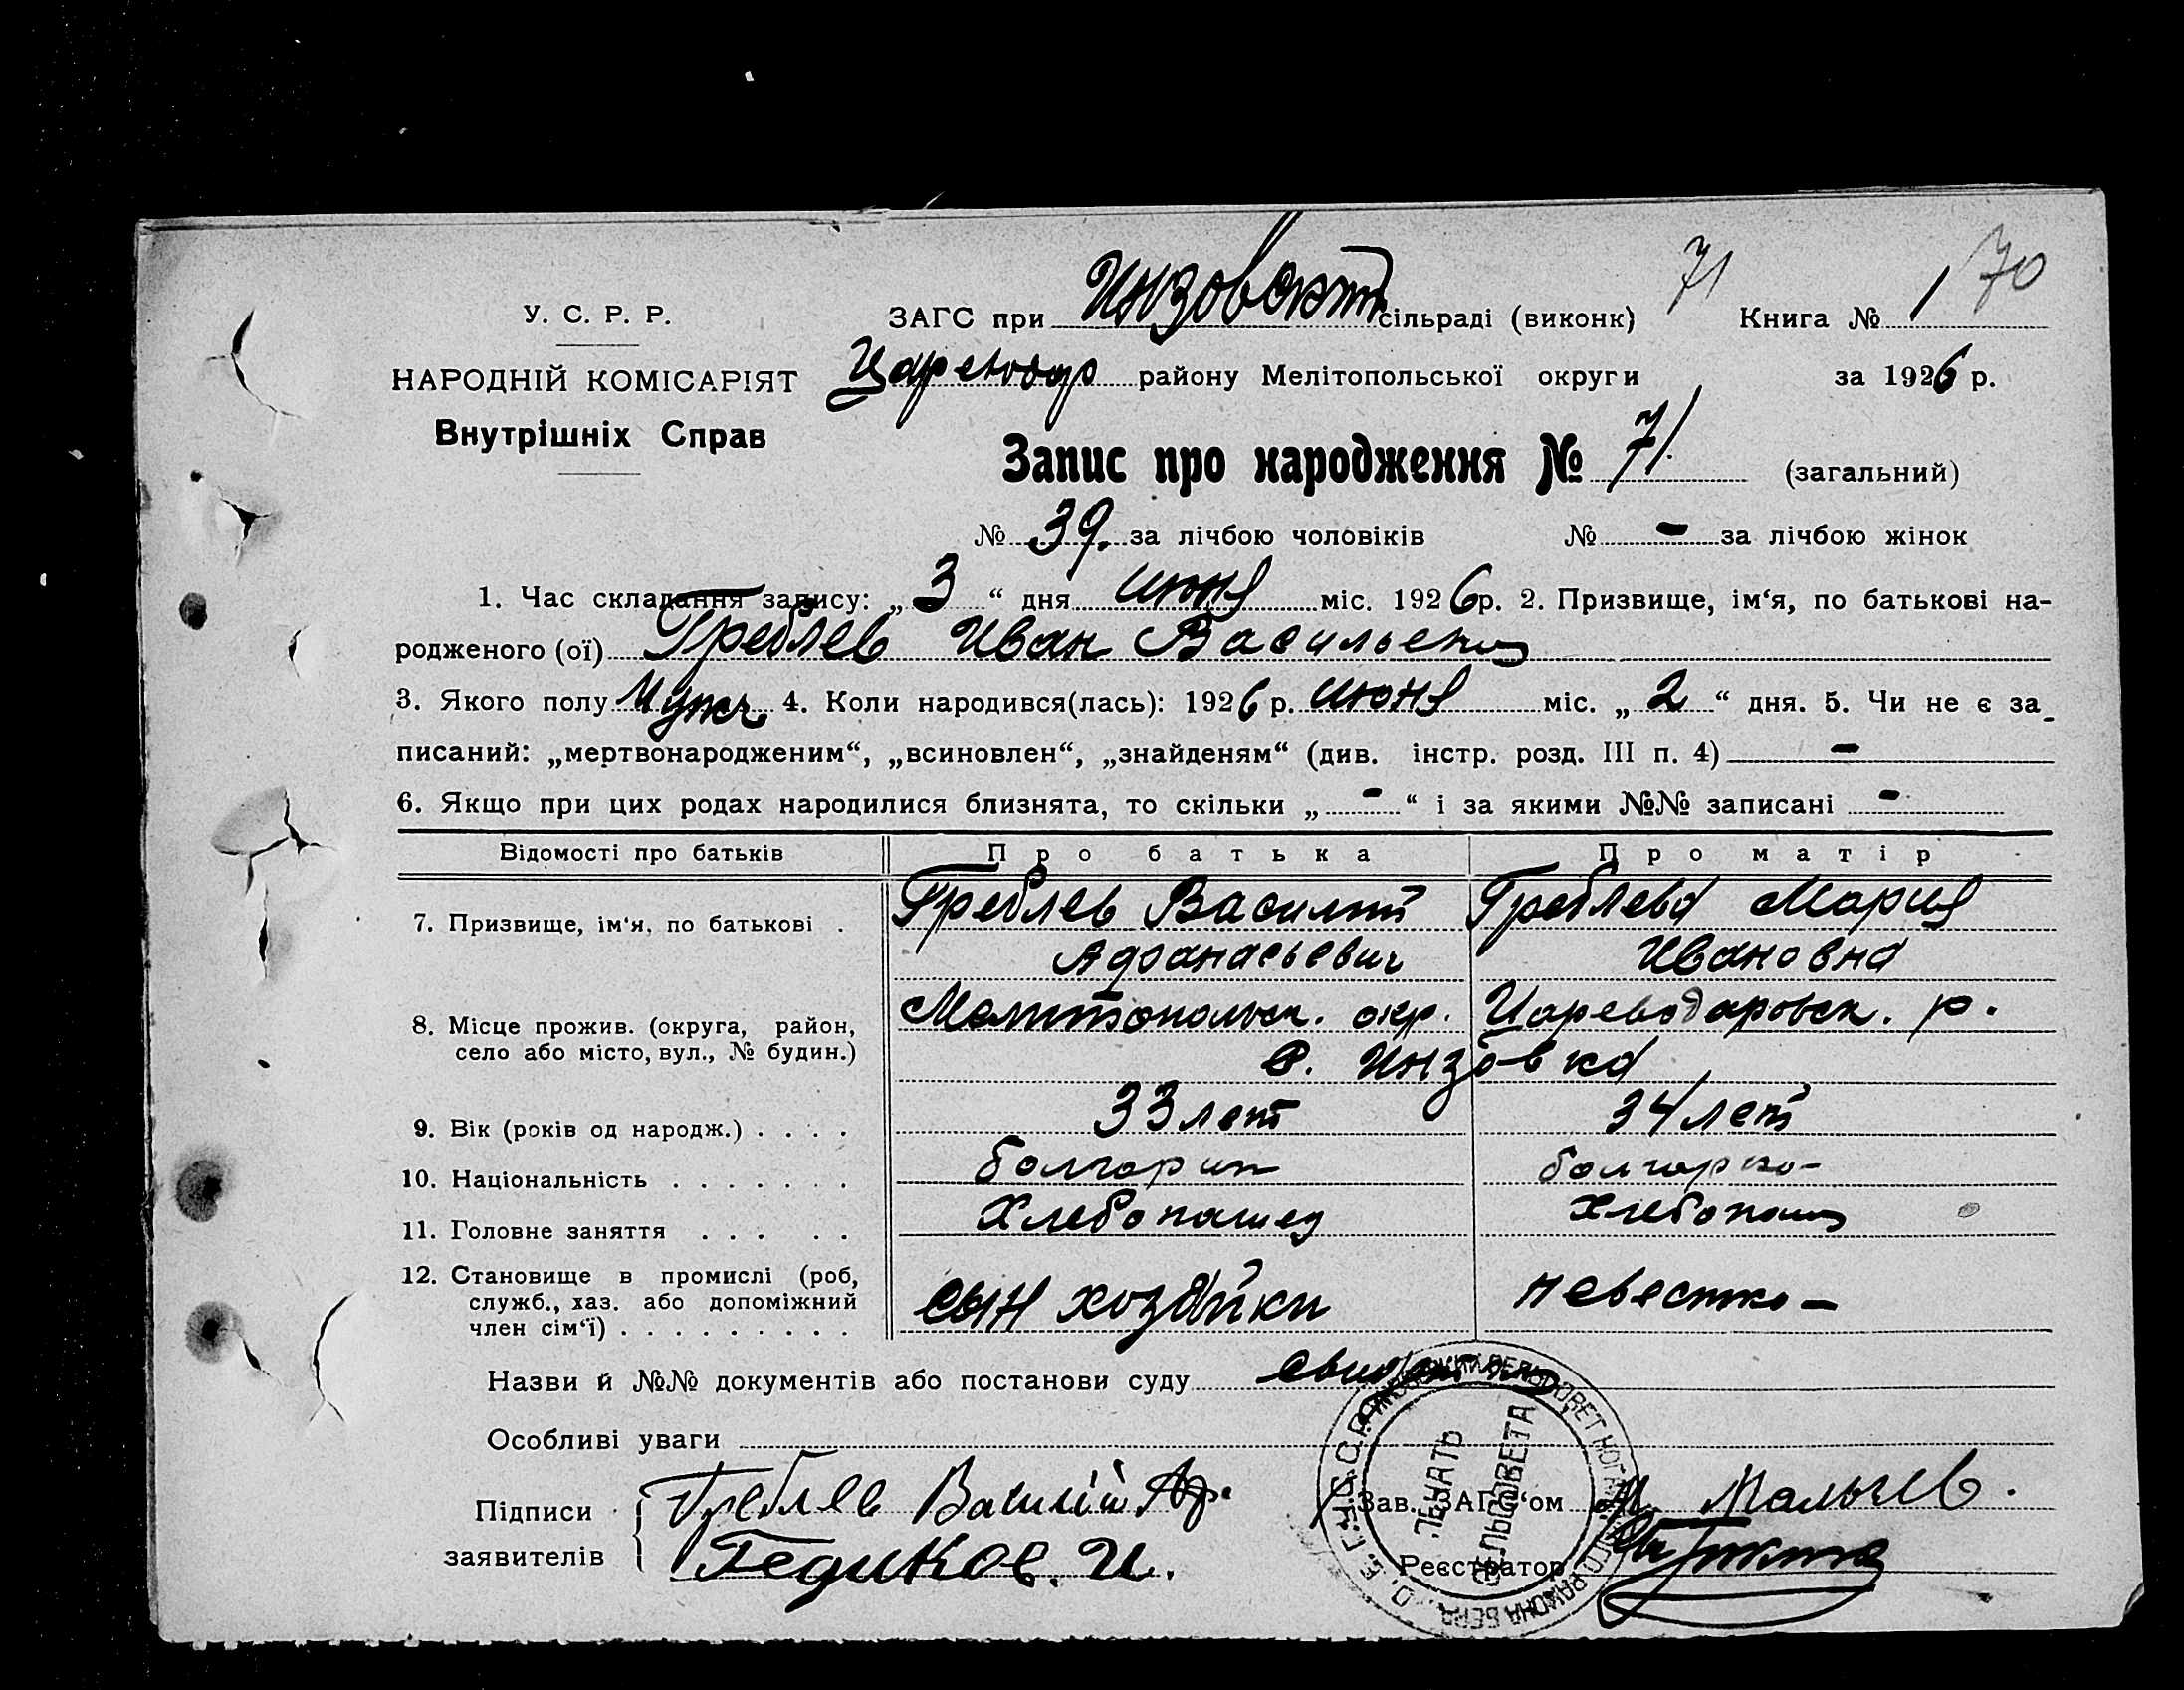 71 70
У. С. Р. Р.
НАРОДНІЙ КОМІСАРІЯТ
Внутрішніх Справ
ЗАГС при Инзовский сільраді (виконк) Книга № 1
Цареводар району Мелітопольської округи за 1926 р.
Запис про народження № 71 (загальний)
№ 39. за лічбою чоловіків № - за лічбою жінок
1. Час складання запису: „ 3 “ дня июня міс. 1926 р. 2. Призвище, ім‘я, по батькові на-
родженого (ої) Греблев Иван Васильевич
3. Якого полу Мужч 4. Коли народився(лась): 1926 р. июня міс. „ 2 “ дня. 5. Чи не є за_
писаний: „мертвонародженим“, „всиновлен“, „знайденям“ (див. інстр. розд. III п. 4) -
6. Якщо при цих родах народилися близнята, то скільки „ - “ і за якими №№ записані -
Відомості про батьків Про батька Про матір
7. Призвище, ім‘я, по батькові . Греблев Василий Греблева Мария
Афанасьевич Ивановна
8. Місце прожив. (округа, район, Мелитопольск. окр. Цареводаровск. р.
село або місто, вул., № будин.) с. Инзовка
9. Вік (років од народж.) . . . . 33 лет 34 лет
10. Національність . . . . . . . болгарин болгарка-
11. Головне заняття . . . . . Хлебопашец Хлебопаш
12. Становище в промислі (роб, служб., хаз. або допоміжний член сім‘ї) . . . . . . . . . сын хозяйки невестка -
Назви й №№ документів або постанови суду
Особливі уваги
Підписи заявителів Греблев Василий Аф.
Гедиков. И.
Зав. ЗАГС‘ом Малычев.
Реєстратор
ПЕЧАТЬ
СЕЛЬСОВЕТА